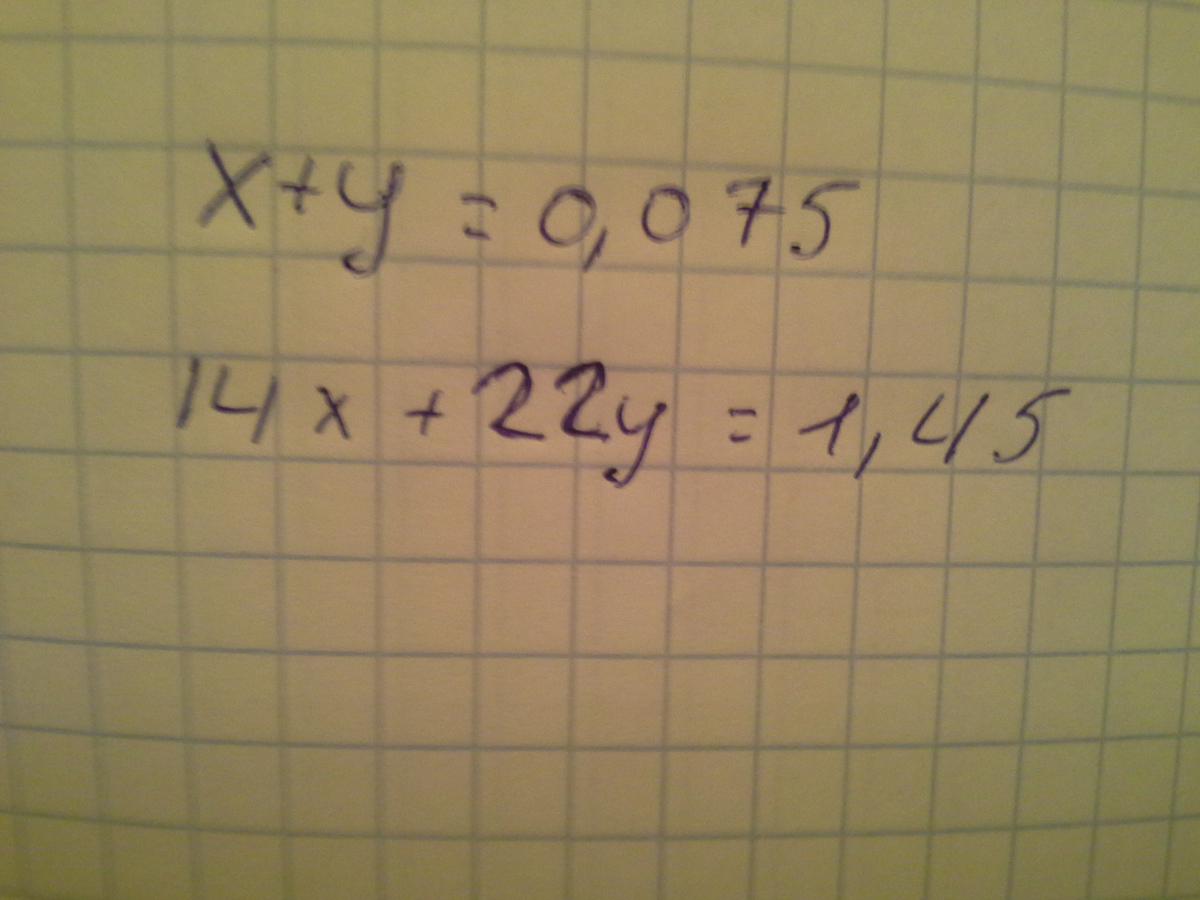 x+y = 0,075
14x + 22y = 1,45